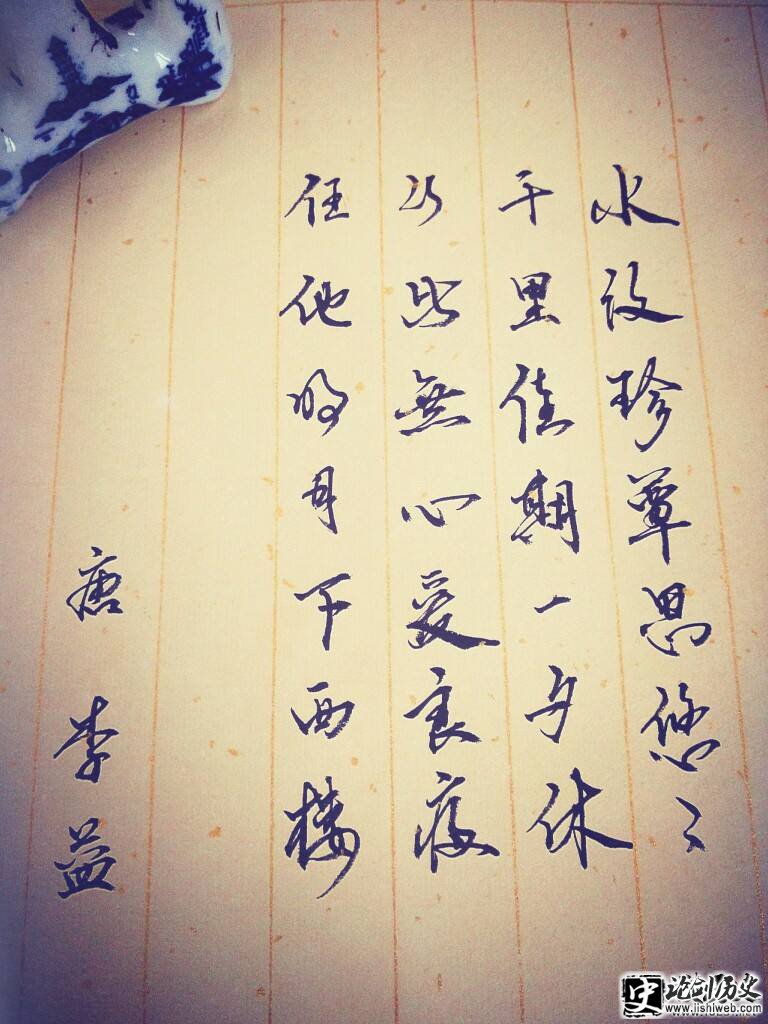 水纹珍簟思悠々
千里佳期一夕休
从此無心爱良夜
任他明月下西楼
唐 李益
史 论剑历史
www.iishiweb.com